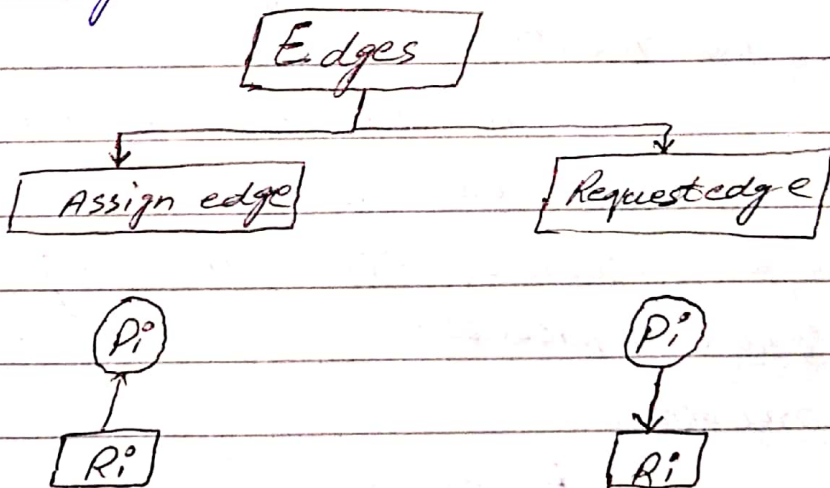 Edges
Assign edge Request edge
Pi Pi
Ri Ri